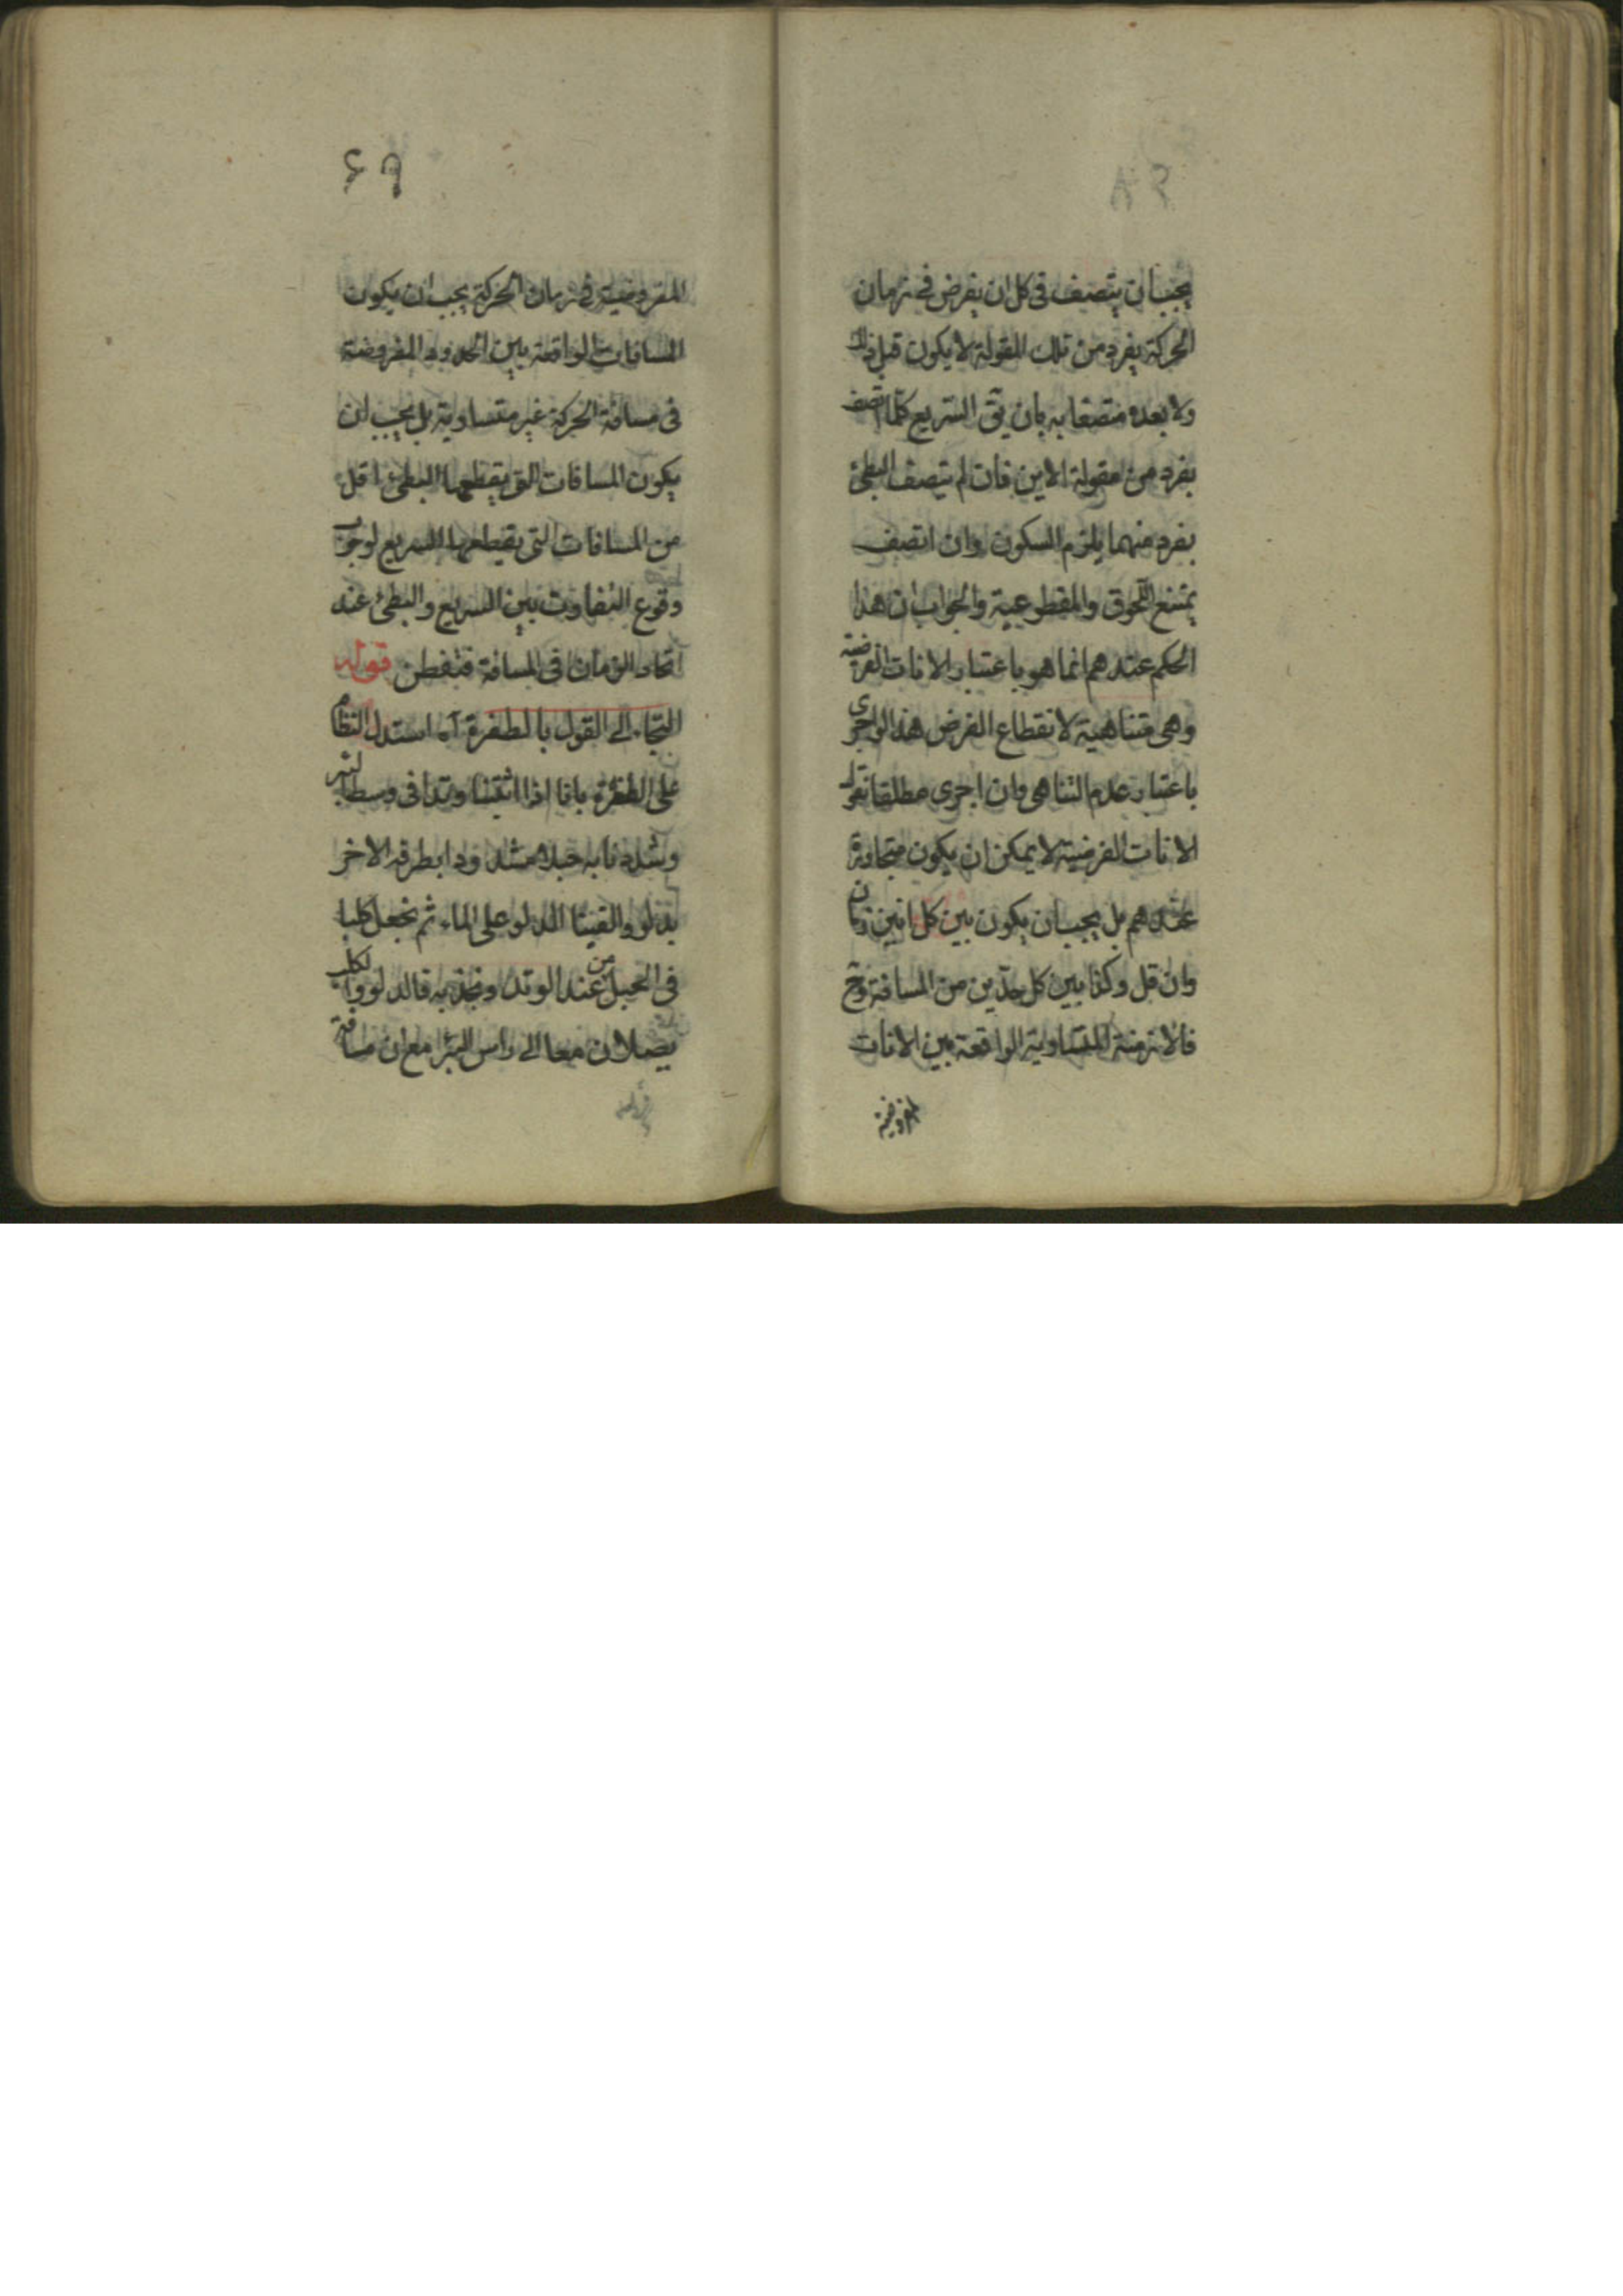 يجب ان يتصف فى كل ان يفرض فى زمان
الحركة بفرد من تلك المقولة لا يكون قبل ذلك
ولا بعده متصفا به بان يق السريع كلما اتصف
بفرد من مقولة الاين فان لم يتصف البطئ
بفرد منهما يلزم السكون وان اتصف
يمتنع اللحوق والمقطوعية والجواب ان هذا
الحكم عندهم انما هو باعتبار الانات الفرضية
وهى متناهية لانقطاع الفرض هذا لو اجرى
باعتبار عدم التناهى وان اجرى مطلقا نقول
الانات الفرضية لا يمكن ان يكون متجاورة
عندهم بل يجب ان يكون بين كل انين زمان
وان قل وكذا بين كل حدين من المسافة وح
فالازمنة المتساوية الواقعة بين الانات
المفروضة
٤٩
المفروضية فى زمان الحركة يجب ان يكون
المسافات الواقعة بين الحدود المفروضة
فى مسافة الحركة غير متساوية بل يجب ان
يكون المسافات التى يقطعها البطئ اقل
من المسافات التى يقطعها السريع لوجوب
وقوع التفاوت بين السريع والبطئ عند
اتحاد الزمان فى المسافة فتفطن قوله
التجاء الى القول بالطفرة آه استدل النظام
على الطفرة بانا اذا اثبتنا وتدا فى وسط البئر
وشددنا به حبلا مشدودا بطرفه الاخر
بدلو والقينا الدلو على الماء ثم نجعل كلبا
فى الحبل من عند الوتد ونجذ به فالدلو والكلب
يصلان معا الى راس البئر مع ان مسافة